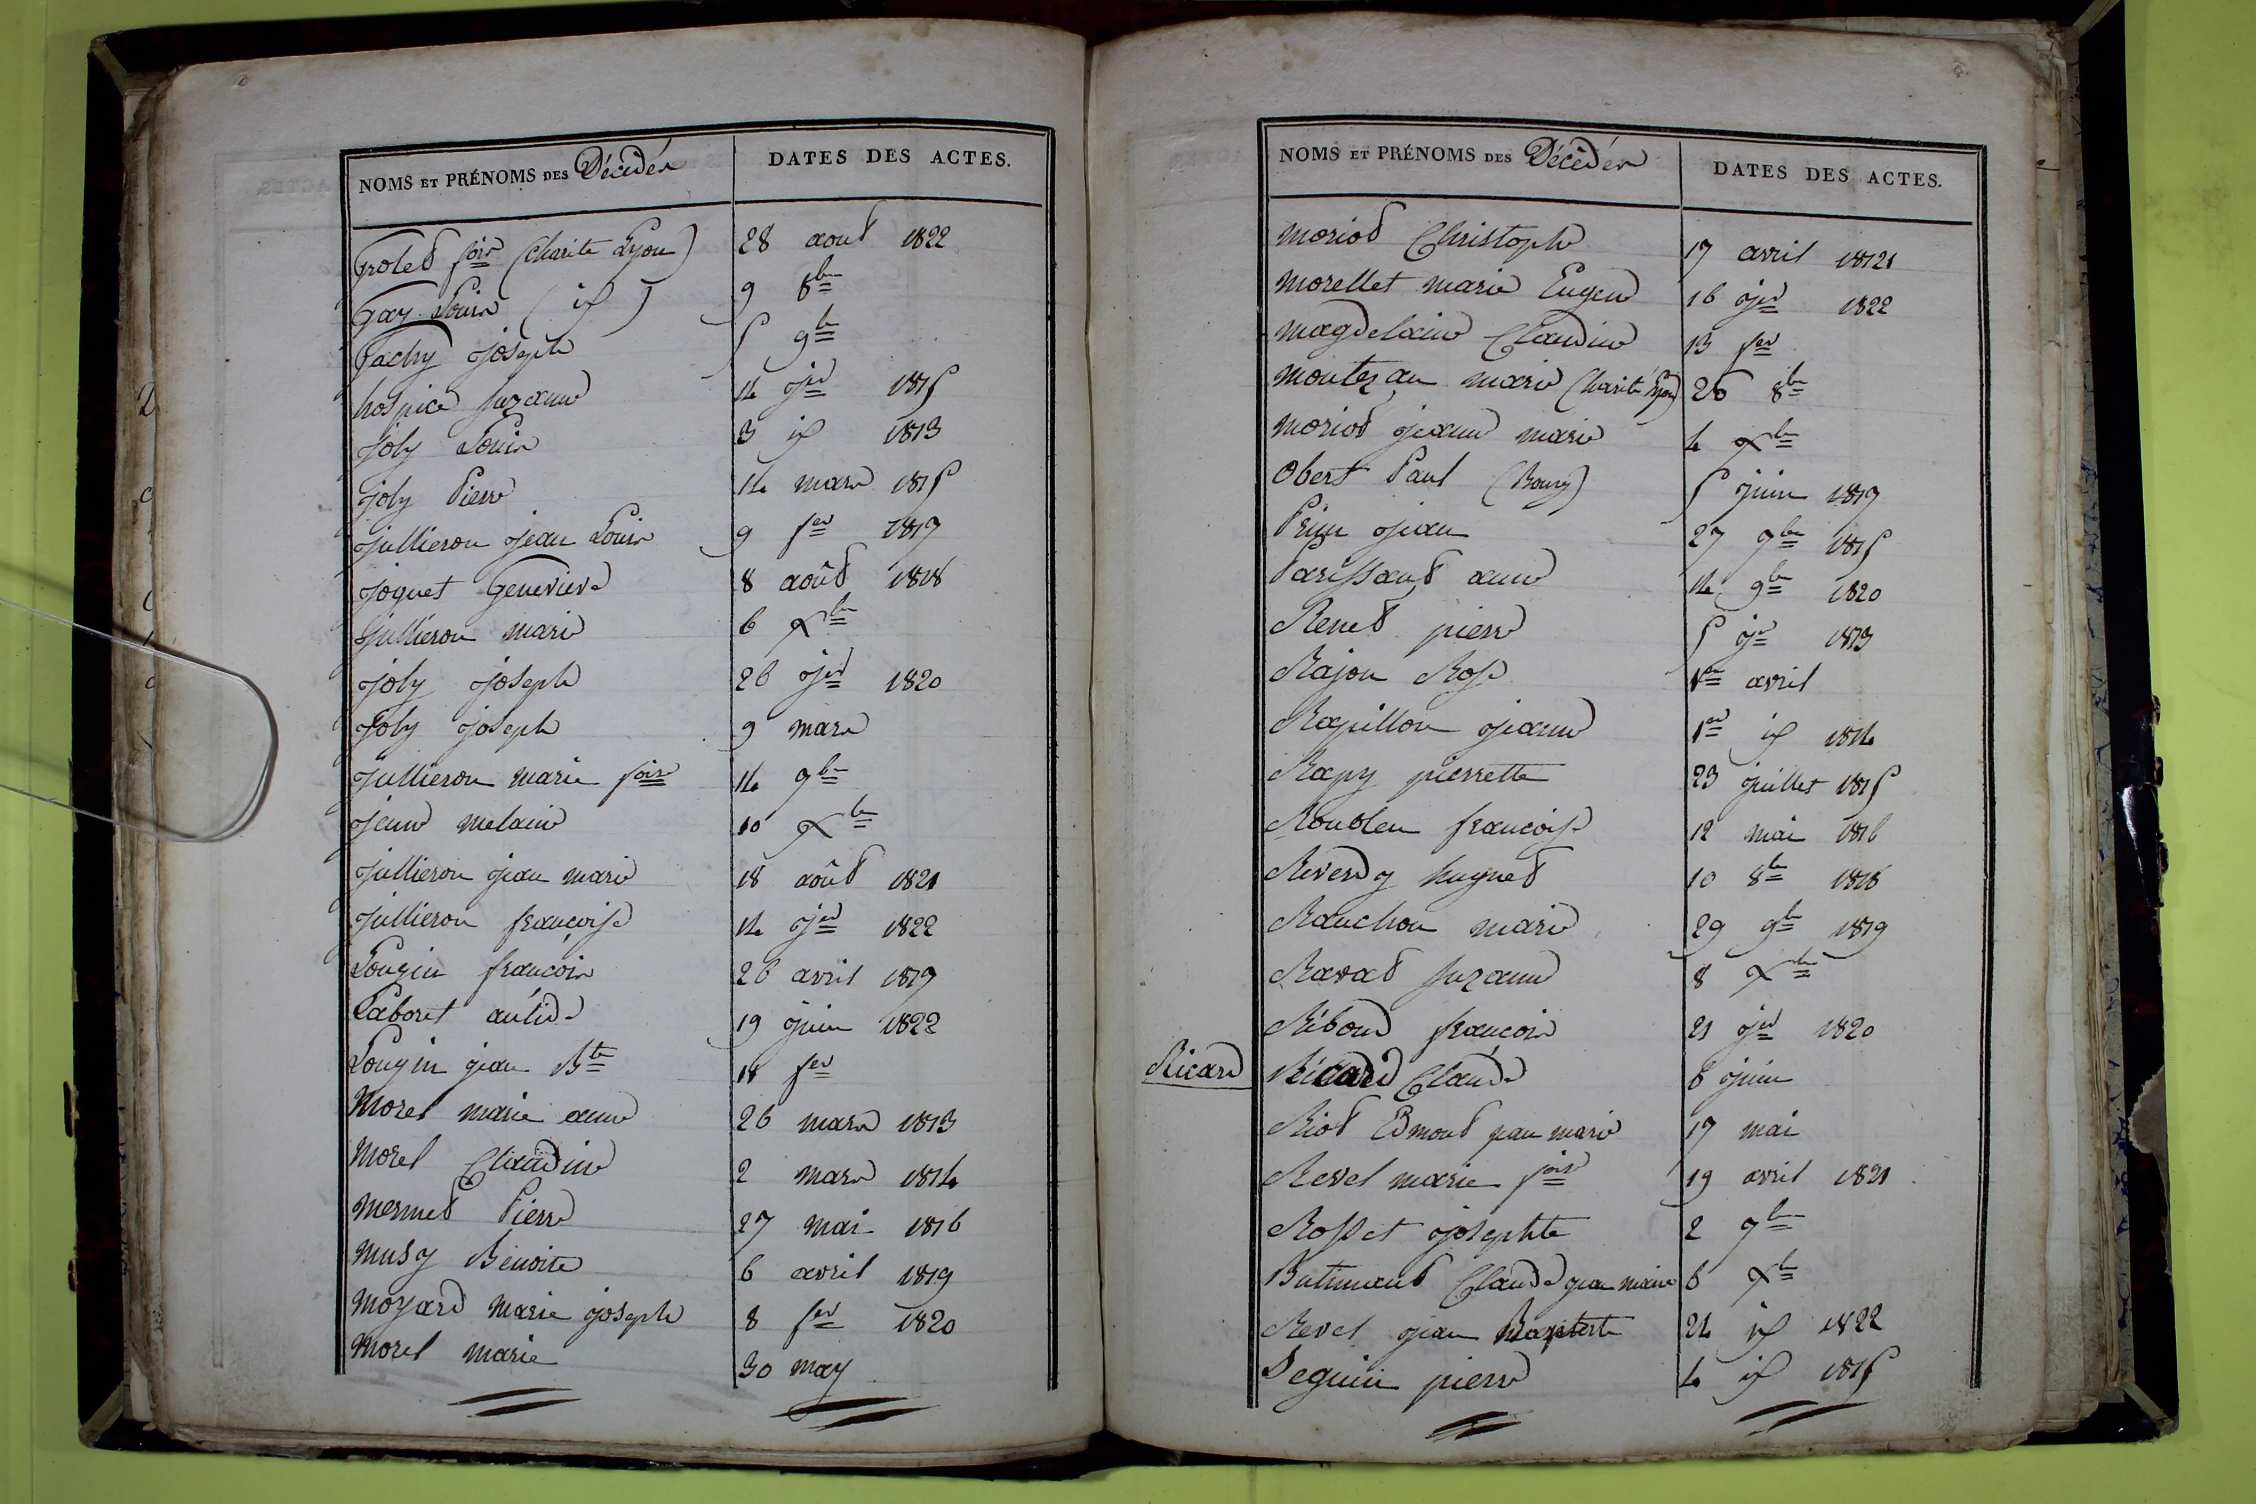 NOMS ET PRÉNOMS DES Décédés DATES DES ACTES.
Grolet foise (Charité Lyon) 28 aout 1822
Gay Louis (id) 9 8bre
Gachy joseph 5 9bre
hospice suzanne 14 jer 1815
joly Louis 3 id 1813
joly Pierre 14 mars 1815
jullieron jean Louis 9 fer 1819
joguet Genevieve 8 août 1818
jullieron marie 6 Xbre
joly joseph 26 jer 1820
joly joseph 9 mars
jullieron marie foise 14 9bre
jeanne melanie 10 Xbre
jullieron jean marie 18 août 1821
jullieron francoise 14 jer 1822
Longin francois 26 avril 1819
Laboret antide 19 juin 1822
Longin jean Bte 18 fer
Morel marie anne 26 mars 1813
Morel Claudine 2 mars 1814
Mermet Pierre 27 mai 1816
Musy Benoite 6 avril 1819
Moyard marie joseph 8 fer 1820
Morel marie 30 may
NOMS ET PRÉNOMS DES Décédés DATES DES ACTES.
Moriod Christophe 17 avril 1821
Morellet marie Eugene 16 jer 1822
Magdelaine Claudine 13 fer
Montezan marie (Charité Lyon) 26 8bre
Moriod jeanne marie 4 Xbre
Obert Paul (Bourg) 5 juin 1819
Prin jean 27 9bre 1815
Parissaud anne 14 9bre 1820
Renud pierre 5 jer 1813
Rajon Rose 1er avril
Rapillon jeanne 1er id 1814
Rapy pierrette 23 juillet 1815
Roublen francoise 12 mai 1816
Reverdy huguet 10 8bre 1818
Ranchon marie 29 9bre 1819
Ravat suzanne 8 Xbre
Riboud francois 21 jer 1820
Ricard Ricard Claude 6 juin
Riot Edmond jean marie 17 mai
Revel marie foise 19 avril 1821
Rosset josephte 2 9bre
Butinaud Claude jean marie 6 Xbre
Revel jean Baptiste 24 id 1822
Seguin pierre 4 id 1815